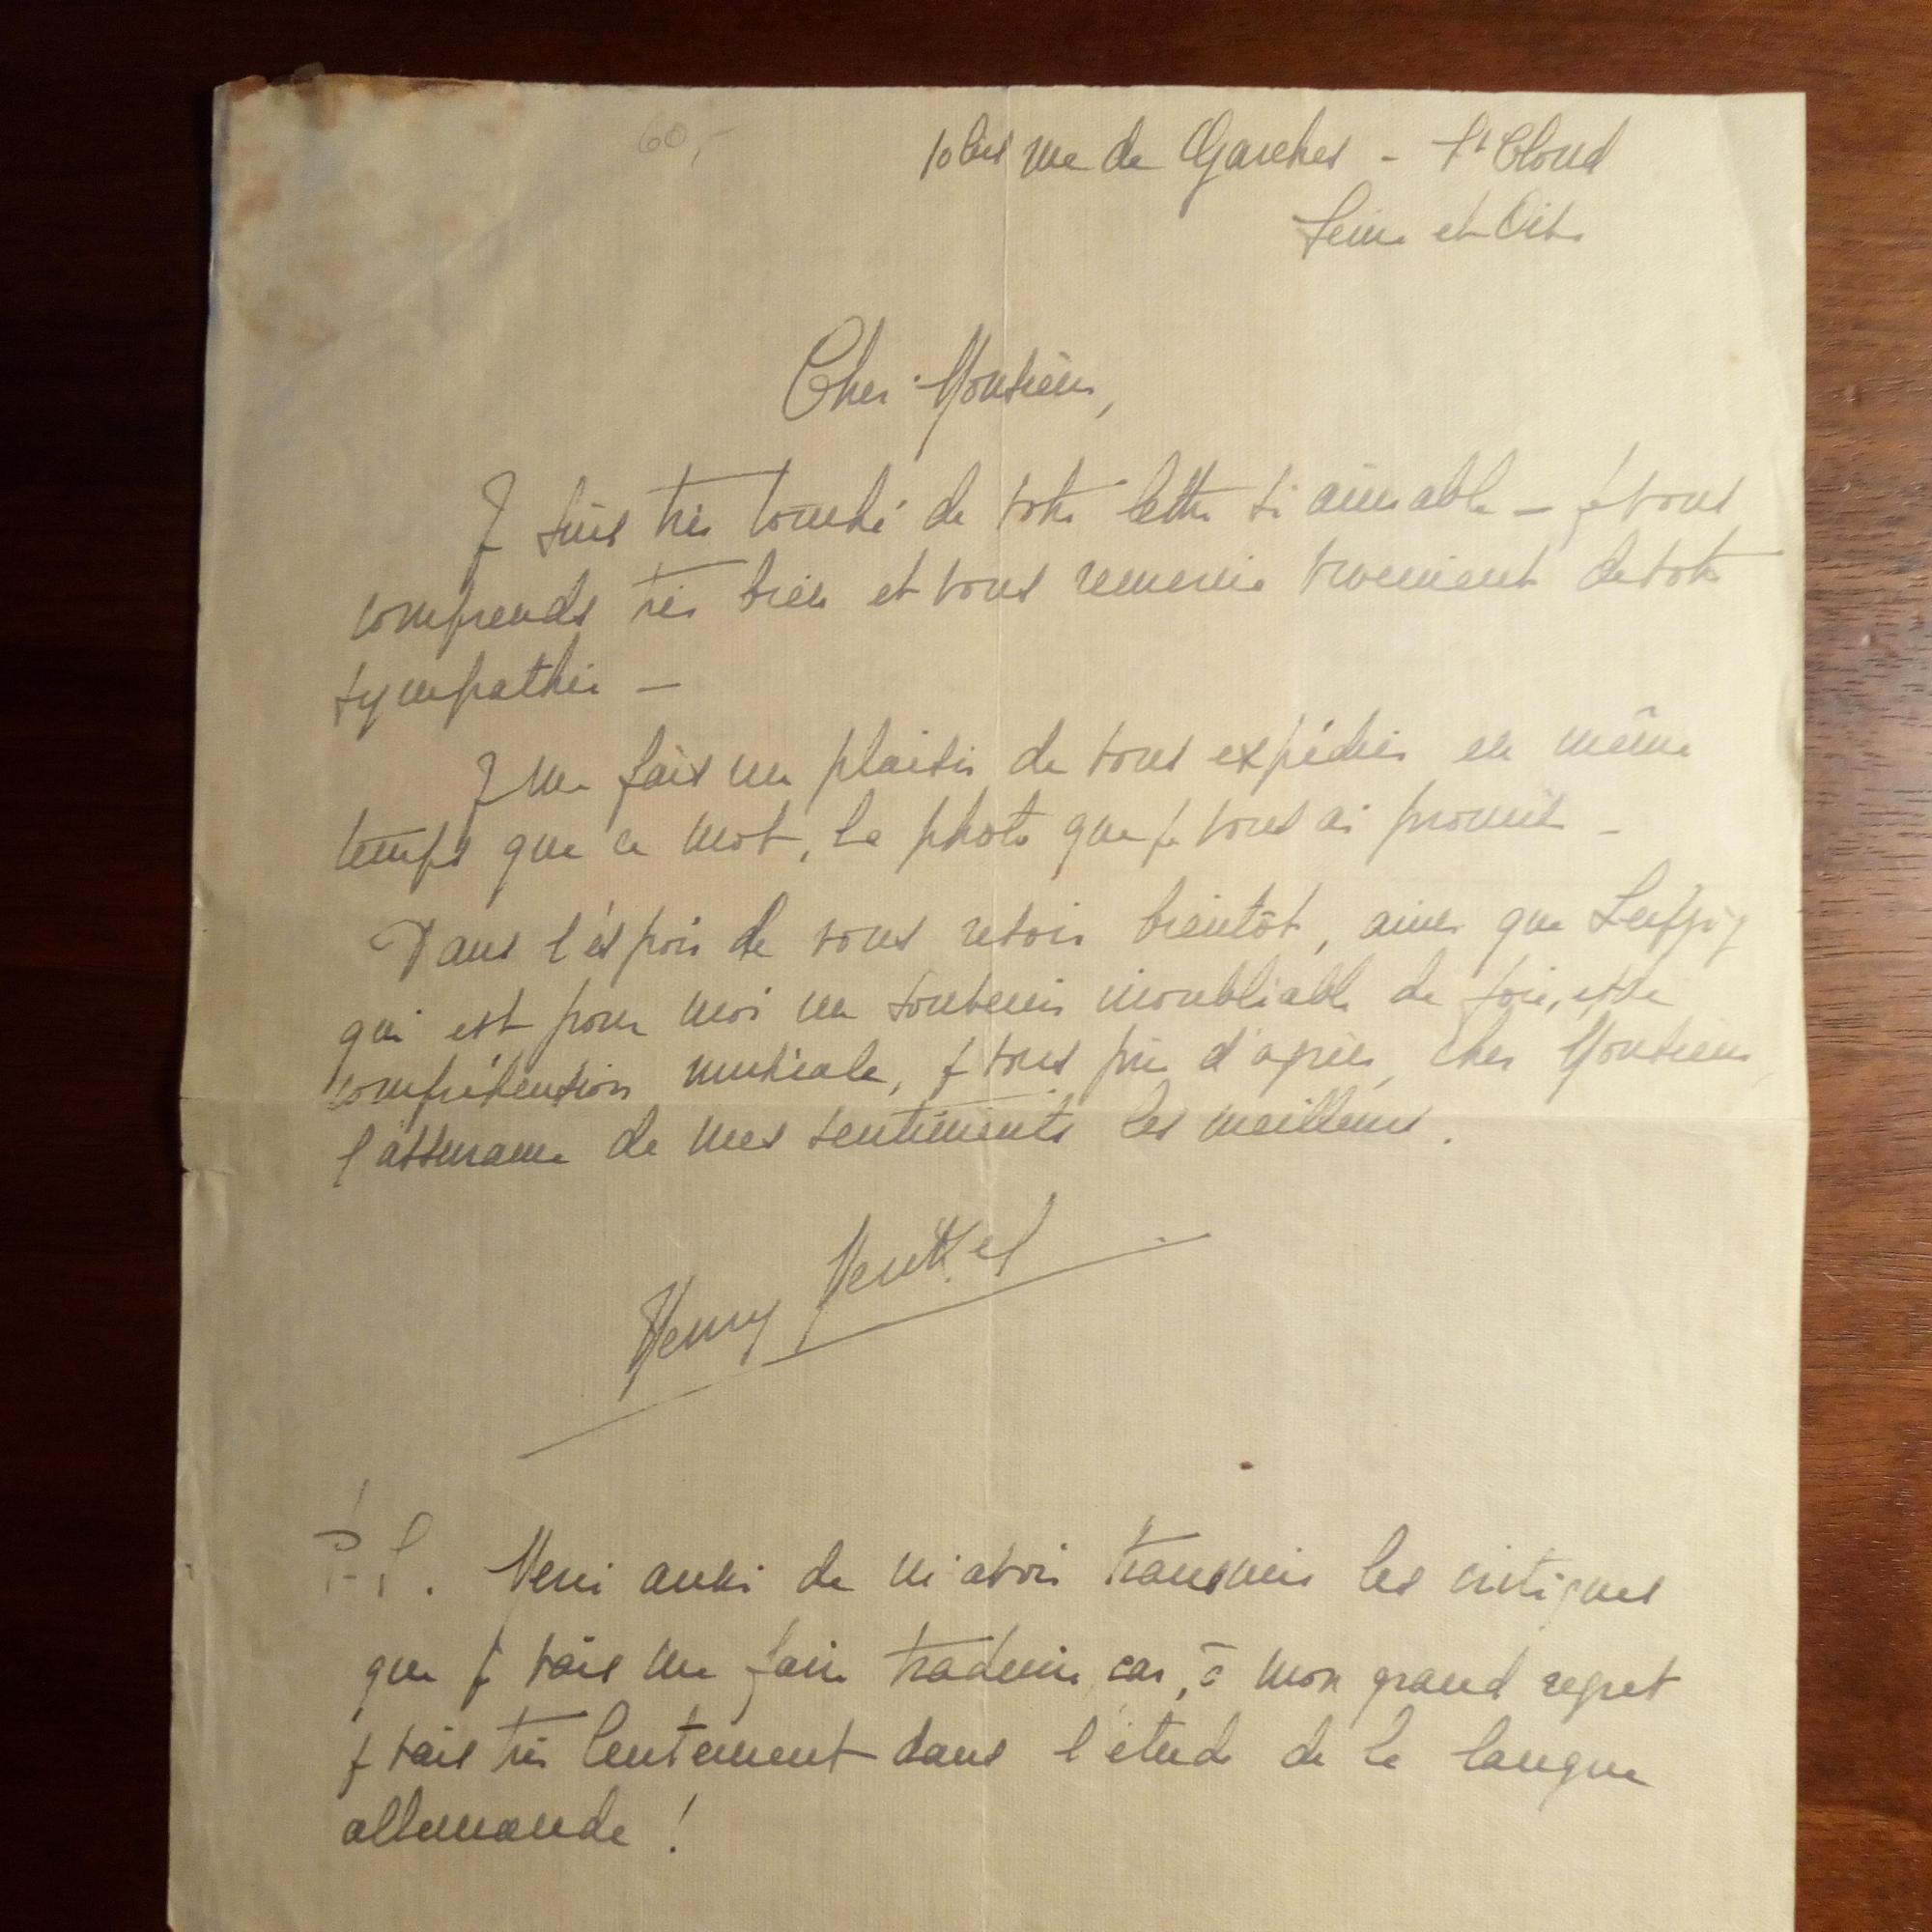 60,-
10 bis rue de Garches - St Cloud
Seine et Oise
Cher Monsieur,
Je suis très touché de votre lettre si aimable - je vous
comprends très bien et vous remercie vivement de votre
sympathie -
Je me fais un plaisir de vous expédier en même
temps que ce mot, la photo que je vous ai promise -
Dans l'espoir de vous revoir bientôt, ainsi que Leipzig
qui est pour moi un souvenir inoubliable de joie, et de
compréhension musicale, je vous prie d'agréer, cher Monsieur,
l'assurance de mes sentiments les meilleurs.
Henry Merckel
P.S. Merci aussi de m'avoir transmis les critiques
que je vais me faire traduire, car, à mon grand regret
je vais très lentement dans l'étude de la langue
allemande !